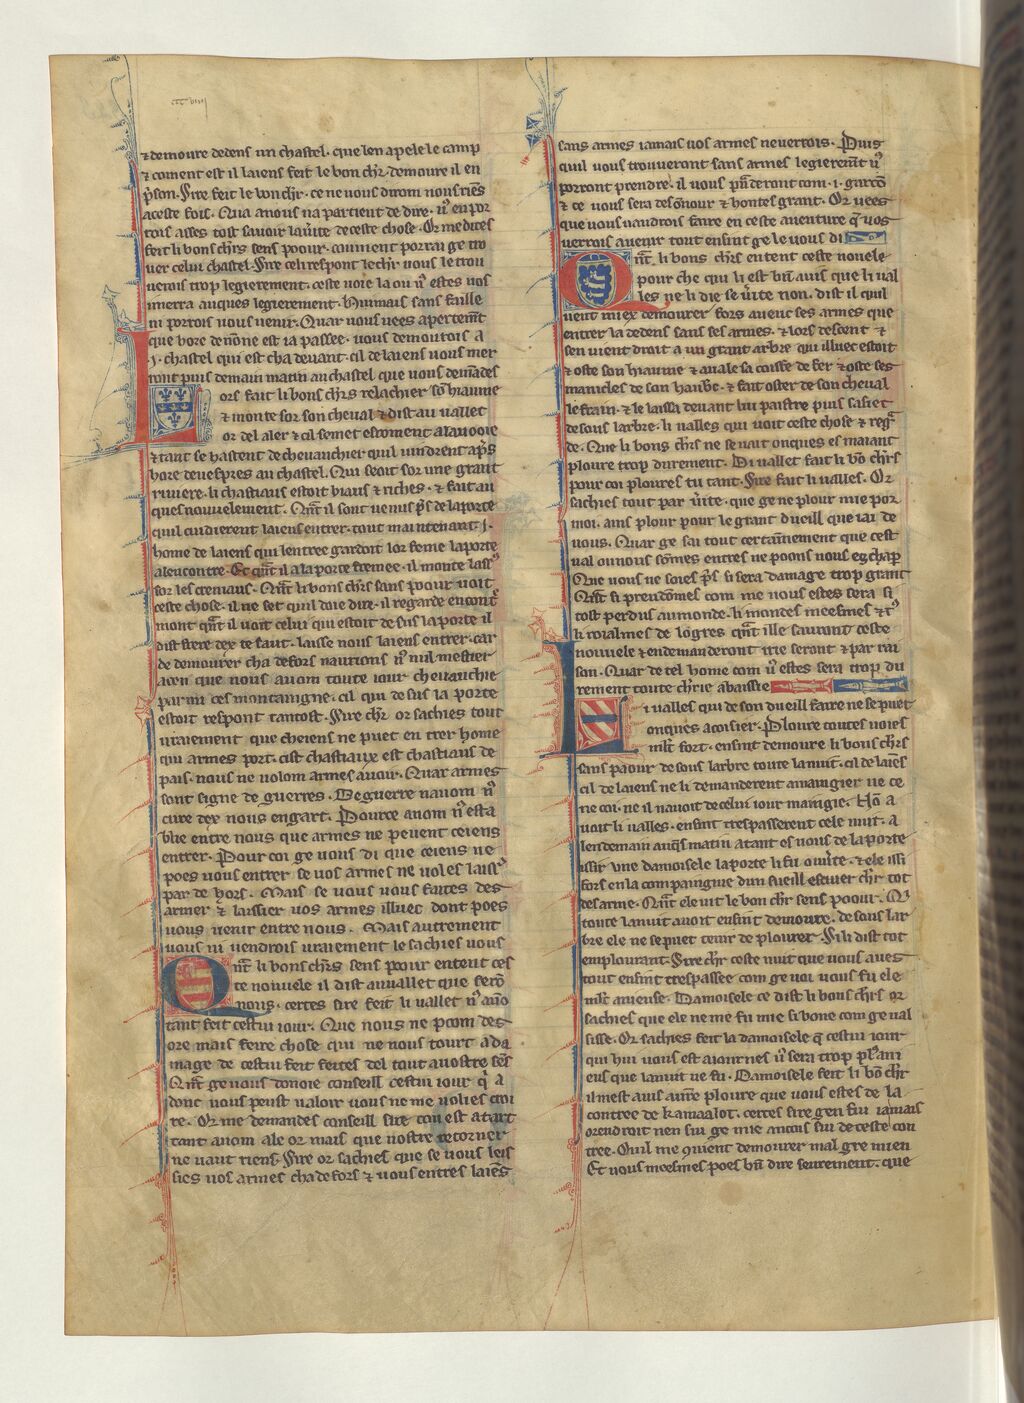 ⁊ demoure dedens un chastel · que len apele le camp
⁊ coment est il laiens feit le bon chr̄ · demoure il en
p̄son · Sire feit le bon chr̄ · ce ne vous dirom nous riēs
a ceste fois · Qua a nous na partient de dire · vͦ en por
rois asses tost savoir la v̄ite de ceste chose · Or me dites
feit li bons chr̄s sens poour · coument porrai ge tro
ver celui chastel · Sire celi respont le chr̄ vous le trou
verois trop legierement · ceste voie la ou vͦ estes vos
i merra auques legierement · Huimais sans faille
ni porrois vous venir · Quar vous vees apertem̄t
que hore de none est ia passee · vous demourois a
·i· chastel qui est cha devant · cil de laiens vous mer
ront puis demain matin au chastel que vous demādes
ors fait li bons chr̄s relachier sō hiaume
⁊ monte sor son cheval ⁊ dist au vallet
or del aler ⁊ cil semet erroment a la voie
⁊ tant se hastent de chevauchier quil vindrent ap̄s
hore de vespres au chastel · Qui seoit sor une grant
riviere · li chastiaus estoit biaus ⁊ riches · ⁊ fait au
ques novvelement · Qn̄t il sont venus p̄s de la porte
quil cuidierent laiens entrer · tout maintenant ·i·
home de laiens qui lentree gardoit lor feme la porte
alencontre · Et qn̄t il a la porte fremee · il monte lass⁹
sor les creniaus · Qn̄t li bons chr̄s sans poour voit
ceste chose · il ne set quil doie dire · il regarde encont̄
mont qn̄t il voit celui qui estoit de sus la porte il
dist frere dex te saut · laisse nous laiens entrer · car
de demourer cha defors navrions nͦ nul mestier
a cen que nous avom toute iour chevauchie
parmi ces montaingne · cil qui de sus la porte
estoit respont tantost · Sire chr̄ or sachies tout
vraiement que cheiens ne puet en trer home
qui armes port · cist chastiaux est chastiaus de
pais · nous ne volom armes avoir · Quar armes
sont signe de guerres · De guerre navom nͦ
cure dex nous engart · Pource avom nͦ esta
blie entre nous que armes ne pevent ceiens
entrer · Pour coi ge vous di que ceiens ne
poes vous entrer se vos armes ne voles laiss̄
par de hors · Mais se vous vous faites des
armer ⁊ laissier vos armes illuec dont poes
vous venir entre nous · Mais autrement
vous ni vendrois vraiement le sachies vous
Qn̄t li bons chr̄s sens poour entent ces
te novvele il dist au vallet que ferō
nous · certes sire feit li vallet nͦ avō
tant feit cestui iour · Que nous ne poom des
ore mais feire chose qui ne nous tourt a da
mage de cestui feit feites del tout a vostre sēs
Qn̄t ge vous donoie conseill cestui iour q̄ a
dont vous peust valoir vous ne me volies croi
re · Or me demandes conseill sire con est a tart
tant avom ale or mais que nostre retorner
ne vaut riens · Sire or sachies que se vous leis
sies vos armes cha defors ⁊ vous entres laiēs
sans armes iamais vos armes ne verrois · Puis
quil vous trouveront sans armes legierem̄t vͦ
porront prendre · il vous pn̄deront com ·i· garcō
⁊ ce vous sera deshonour ⁊ hontes grant · Or vees
que vous vaudrois faire en ceste aventure q̄ vos
verrois avenir tout ensint ge le vous di
Qn̄t li bons chr̄s entent ceste novele
pour che que li est bn̄ avis que li val
les ne li die se v̄ite non · dist il quil
veut miex demourer fors avec ses armes que
entrer la dedens sans ses armes · ⁊ lors descent ⁊
sen vient droit a un grant arbre qui illuec estoit
⁊ oste son hiaume ⁊ avale sa coiffe de fer ⁊ oste ses
manicles de son haub̄c · ⁊ fait oster de son cheval
le frain · ⁊ le laissa devant lui paistre puis sasiet
de sous larbre · li valles qui voit ceste chose ⁊ reg̃r
de · Que li bons chr̄s ne se vait onques esmaiant
ploure trop durement · Di vallet fait li bō chr̄s
pour coi ploures tu tant · Sire fait li valles · Or
sachies tout par v̄ite · que ge ne plour mie por
moi · ains plour pour le grant dueill que iai de
vous · Quar ge sai tout certainnement que cest
val ou nous sōmes entres ne poons nous eschap̄
Que vous ne soies p̄s si sera damage trop grant
Qn̄t si prendōmes com me vous estes sera si
tost perdus au monde · li mondes meesmes ⁊ tͦ
li roialmes de lōgres qn̄t ille sauront ceste
novvele ⁊ en demanderont irie seront ⁊ par rai
son · Quar de tel home com vͦ estes sera trop du
rement toute chr̄ie abaissie
i valles qui de son dueill faire ne se puet
onques acoisier · Ploure toutes voies
ml̄t fort · ensint demoure li bons chr̄s
sans paour de sous larbre toute la nuit · cil de laiēs
cil de laiens ne li demanderent a maingier ne ce
ne coi · ne il navoit de celui iour maingie · Hō a
voit li valles · ensint trespasserent cele nuit · a
lendemain auq̄s matin atant es vous de la porte
issir une damoisele la porte li fu ov̄te · ⁊ ele issi
fors en la compaingnie dun sueill escuier chr̄ tot
desarme · Qn̄t ele vit le bon chr̄ sens poour · Q̄
toute la nuit avoit ensint demoure · de sous lar
bre ele ne se puet tenir de plourer · Si li dist tot
emplourant · Sire chr̄ ceste nuit que vous aves
tout ensint trespassee com ge voi vous fu ele
ml̄t anieuse · Damoisele ce dist li bons chr̄s or
sachies que ele ne me fu mie si bone com ge val
sisse · Or sachies feit la damoisele q̄ cestui iour
qui hui vous est aiornes vͦ sera trop pl⁹ ani
eus que la nuit ne fu · Damoisele feit li bō chr̄
il mest avis aut̄re ploure que vous estes de la
contree de kamaalot · certes sire gen fui iamais
orendroit nen sui ge mie aincois sui de ceste con
tree · Or il me q̄vient demourer mal gre mien
Et vous meesmes poes bn̄ dire seurement · que